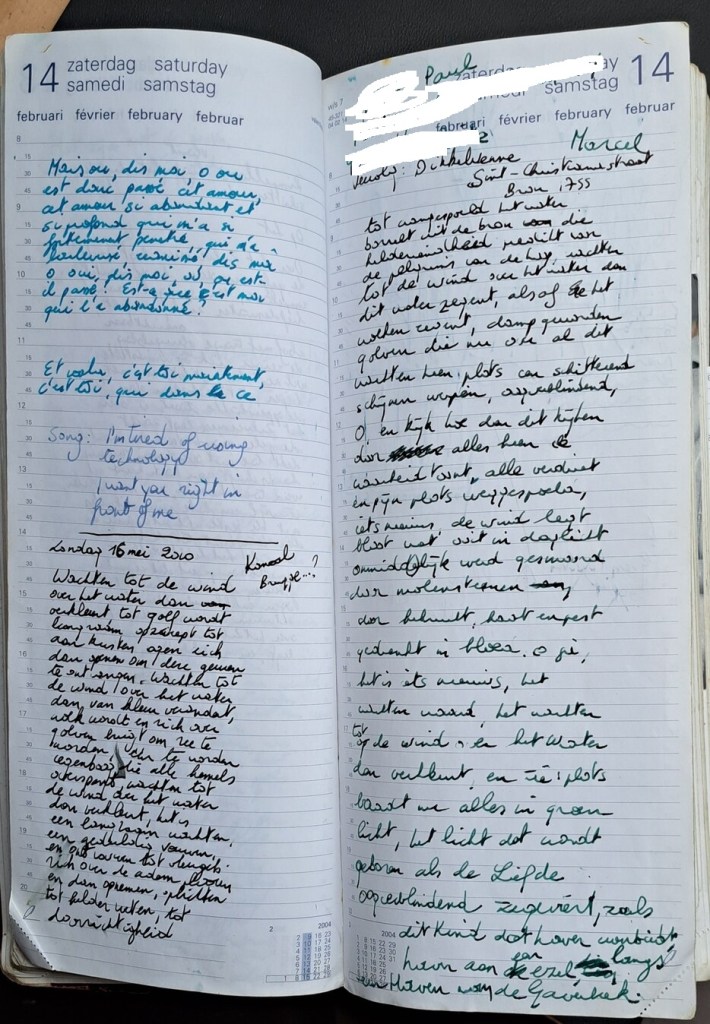 14 zaterdag saturday
samedi samstag
februari février february februar
Mais ou, dis moi, o ou
est donc passé cet amour,
cet amour si abondant et
si profond qui m'a si
fortement penetré, qui m'a
dis moi
o oui, dis moi, où, est-
il passé. Est-ce que c'est moi
qui l'a abandonné?
Et voila, c'est toi maintenant,
c'est toi, qui dans le ce
Song: I'm tired of using
technology
I want you right in
front of me
Zondag 16 mei 2010
Kanaal
Brugge...?
Wachten tot de wind
over het water dan
verkleurt tot golf wordt
langzaam opzweept tot
aan kusten ogen zich
dan openen om deze gouden
te ontvangen. Wachten tot
de wind over het water
dan van kleur verandert,
wolk wordt en zich over
golven buigt om zee te
worden, om te worden
regenboog die alle hemels
overspant, wachten tot
de wind over het water
dan verkleurt, het is
een langzaam wachten,
een geduldig vouwen,
en ontvouwen tot vleugels
zich over de adem
en dan opnemen, oplichten
tot helder weten, tot
doorzichtigheid
2 2004
Paul
zaterdag
samstag
14
februari février february februar
Marcel
Dikkelvenne
Sint-Christianastraat
Bron, 755
tot aangespoeld het water
borrelt uit de bron die
helderheid
de pelgrims van de weg, wachten
tot de wind over het water dan
dit water zegent, alsof het
wolken, damp geworden
golven die nu over al dit
wachten heen plots een schitterend
schijnen werpen, oogverblindend,
O, en kijk hoe dan dit kijken
door alles heen
waarheid wordt, alle verdriet
en pijn plots weggespoeld,
iets nieuws, de wind legt
bloot wat ooit in daglicht
onmiddellijk werd gesmoord
door molenstenen
dor behuild, haat en pest
gedrenkt in bloed. O ja,
het is iets nieuws, het
wachten waard, het wachten
tot de wind over het water
dan verkleurt, en zie: plots
baadt nu alles in groen
licht, het licht dat wordt
geboren als de Liefde
oogverblindend zegeviert, zoals
dit kind dat haver
haver aan een ezel langs
een Haven van de Gaverbeek.
2004